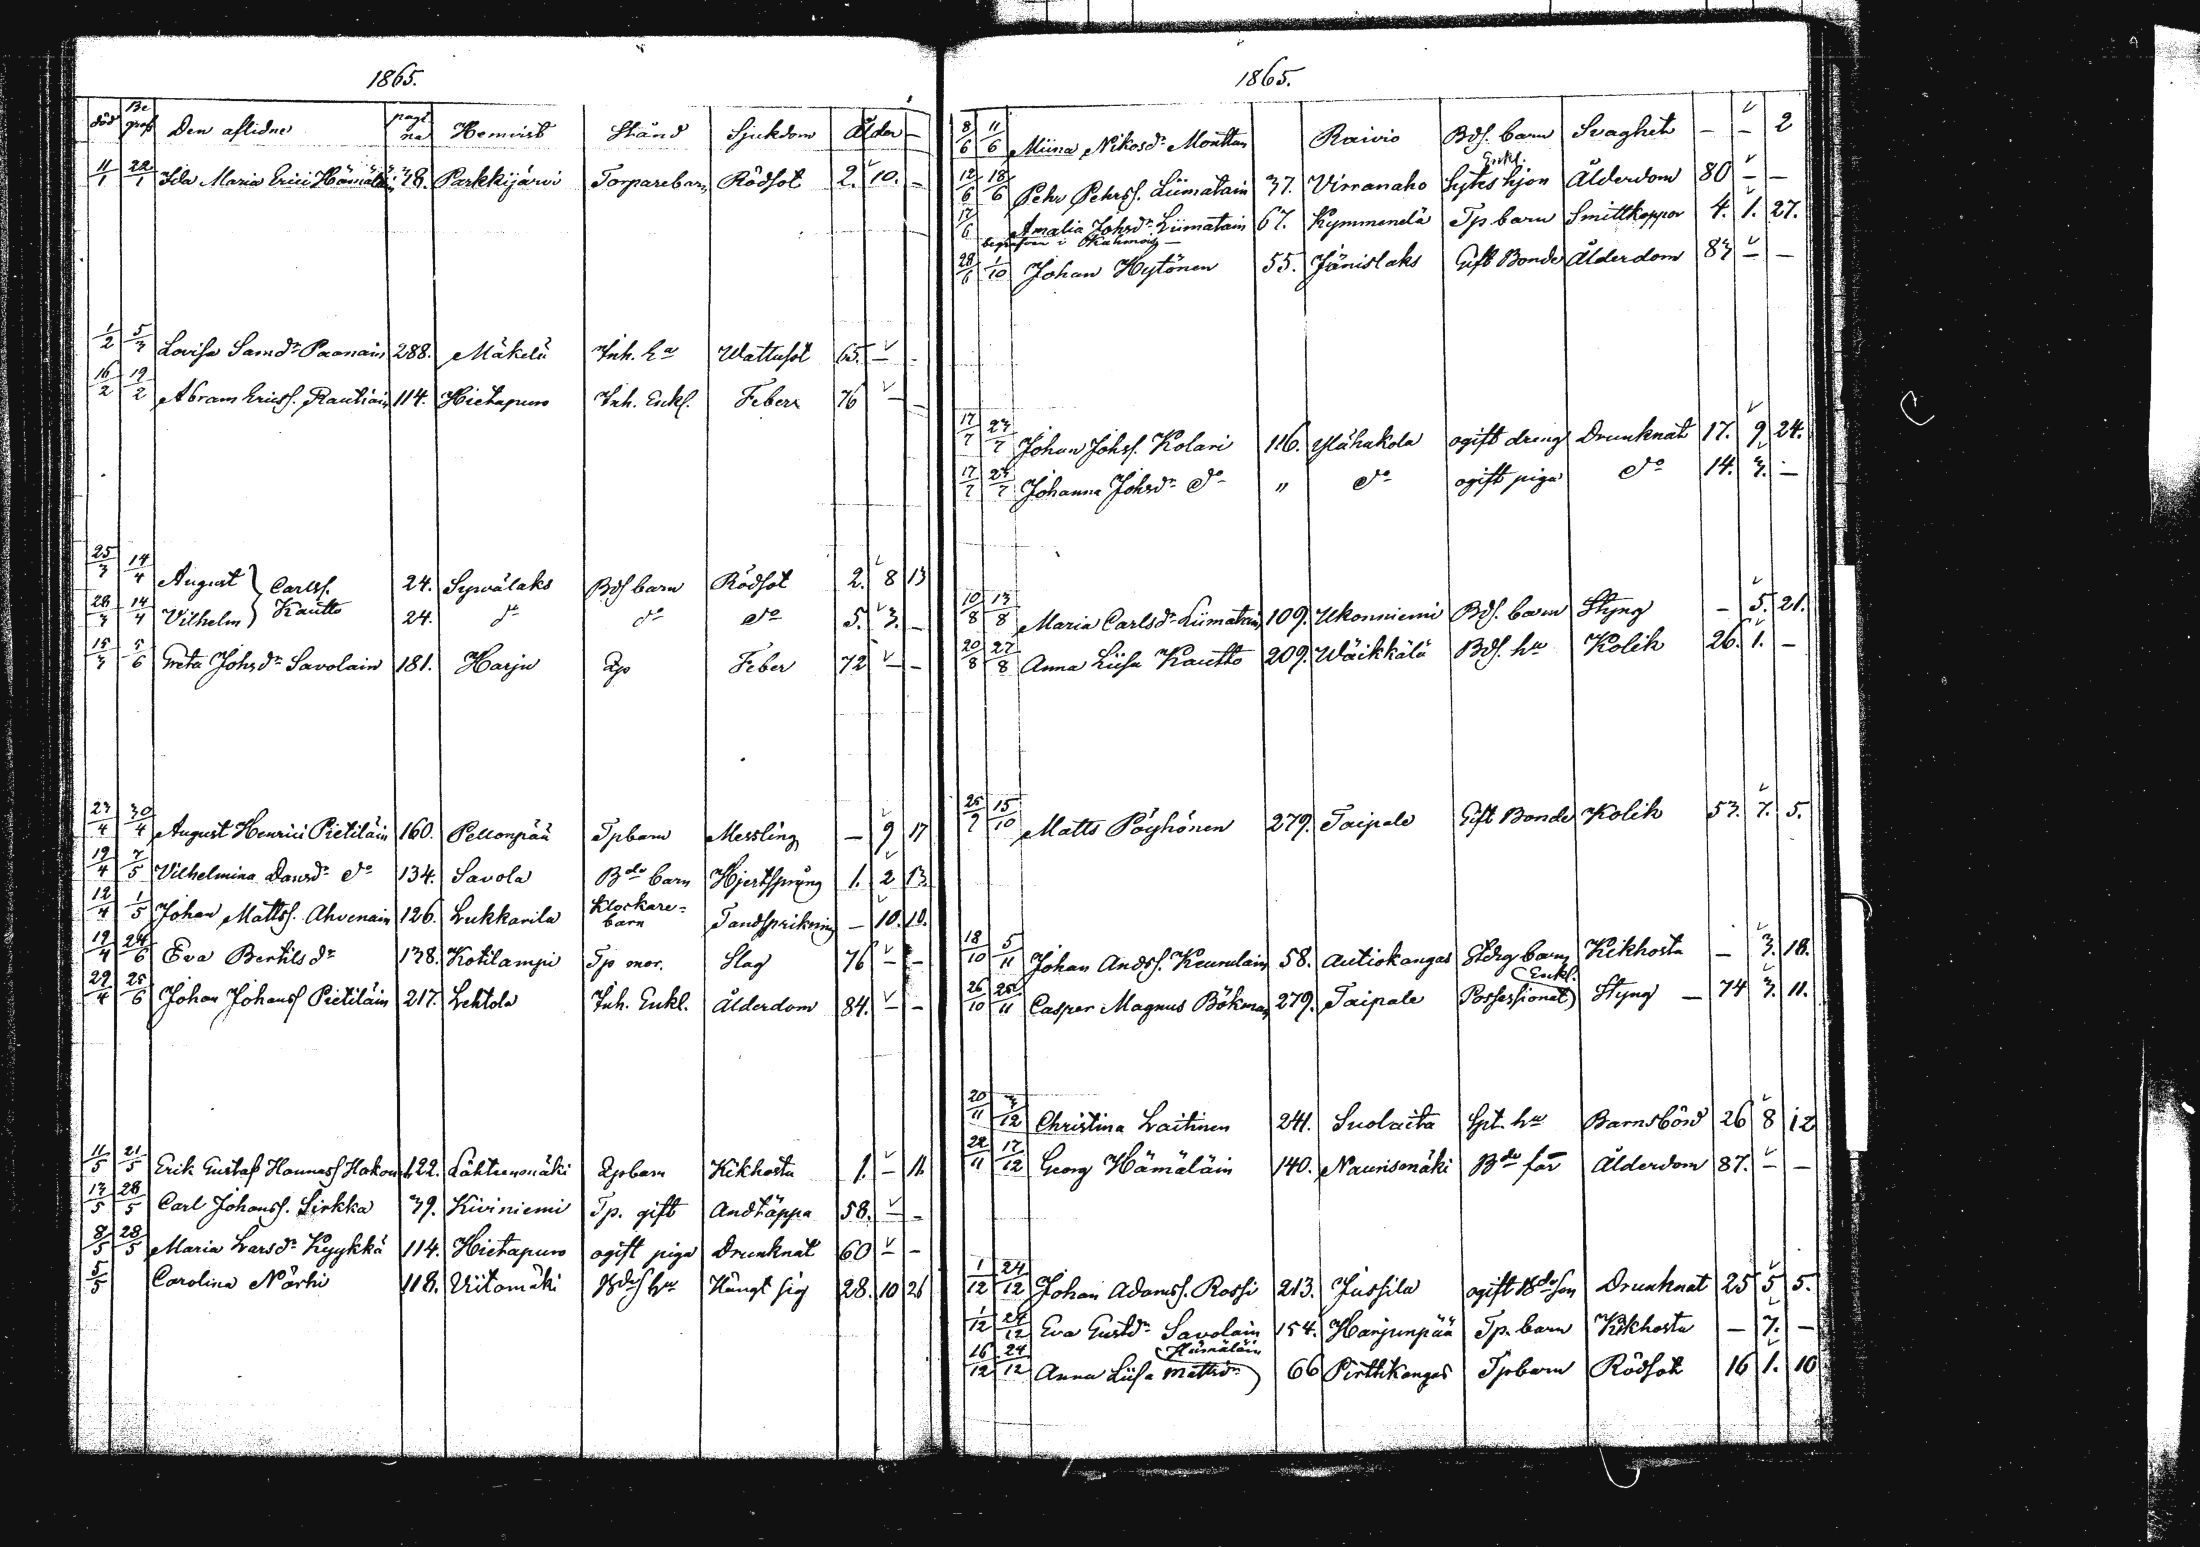 1865.
död Be graf Den aflidne pagi na Hemvist Stånd Sjukdom Ålder
11/1 22/1 Ida Maria Erici Hämäläin 38. Parkkijärvi Torparebarn Rödsot 2. 10. –
1/2 5/3 Lovisa Samdr Paanain 288. Mäkelä Inh. ha Wattusot 65. – –
16/2 19/2 Abram Ericss. Rautiain 114. Hietapuro Inh. Enkl. Feber 76 – –
25/3 14/4 August } Carlss. 24. Syvälaks Bds barn Rödsot 2. 8 13
28/3 14/4 Vilhelm } Kautto 24. do do do 5. 3. –
15/3 5/6 Greta Johsdr Savolain 181. Harju Feber 72 – –
23/4 30/4 August Henrici Pietiläin 160. Pellonpää Tpbarn Messling – 9 17
19/4 7/5 Vilhelmina Danrdr do 134. Savola Bde barn Hjertsprång 1. 2 13.
12/4 1/5 Johan Mattss. Ahvenain 126. Lukkarila Klockare= barn Tandsprikning – 10. 10.
19/4 24/6 Eva Bertilsdr 138. Kotilampi Tp mor. Slag 76 – –
29/4 25/6 Johan Johanss Pietiläin 217. Lehtola Inh. Enkl. Ålderdom 84. – –
11/5 21/5 Erik Gustaf Hannuss Hakon 122. Lähteenmäki barn Kikhosta 1. – 11
13/5 28/5 Carl Johanss. Sirkka 39. Kiviniemi Tp. gift Andtäppa 58. – –
8/5 28/5 Maria Larsdr Kyykkä 114. Hietapuro ogift piga Drunknat 60 – –
5/5 Carolina Närhi 118. Viitamäki Bds hu Hängt sig 28. 10 26
1865.
8/6 11/6 Miina Nikosdr Monttan Raivio Bds. barn Svaghet – – 2
12/6 18/6 Pehr Pehrss. Liimatain 37. Virranaho Enkl. Sytes hjon Ålderdom 80 – –
17/6 Amalia Johsdr Liimatain 67. Kymmenelä Tp barn Smittkoppor 4. 1. 27.
begrafven i
28/6 1/10 Johan Hytönen 55. Jänislaks Gift Bonde Ålderdom 83 – –
17/7 23/7 Johan Johss. Kolari 116. Ylähakola ogift dreng Drunknat 17. 9 24.
17/7 23/7 Johanna Johsdr do " do ogift piga do 14. 3. –
10/8 13/8 Maria Carlsdr Liimatain 109. Ukonniemi Bds. barn Styng – 5. 21.
20/8 27/8 Anna Liisa Kautto 209. Wäikkälä Bds. hu Kolik 26. 1. –
25/9 15/10 Matts Pöyhönen 279. Taipale Gift Bonde Kolik 53. 7. 5.
18/10 5/11 Johan Andss. Keurulain 58. Autiokangas Stdrg barn Kikhosta – 3. 18.
26/10 25/11 Casper Magnus Bökman 279. Taipale Possessionat (Enkl.) Styng – 74 3. 11.
20/11 3/12 Christina Laitinen 241. Suolaita Spt. hu Barnsbörd 26 8 12
22/11 17/12 Georg Hämäläin 140. Naurismäki Bde far Ålderdom 87. – –
1/12 24/12 Johan Adamss. Rossi 213. Jussila ogift Bde son Drunknat 25 5 5.
1/12 24/12 Eva Gustdr Savolain 154. Harjunpää Tp. barn Kikhosta – 7. –
16/12 24/12 Anna Liisa Mattsdr (Hämäläin) 66 Pirttikangas Tpbarn Rödsot 16 1. 10